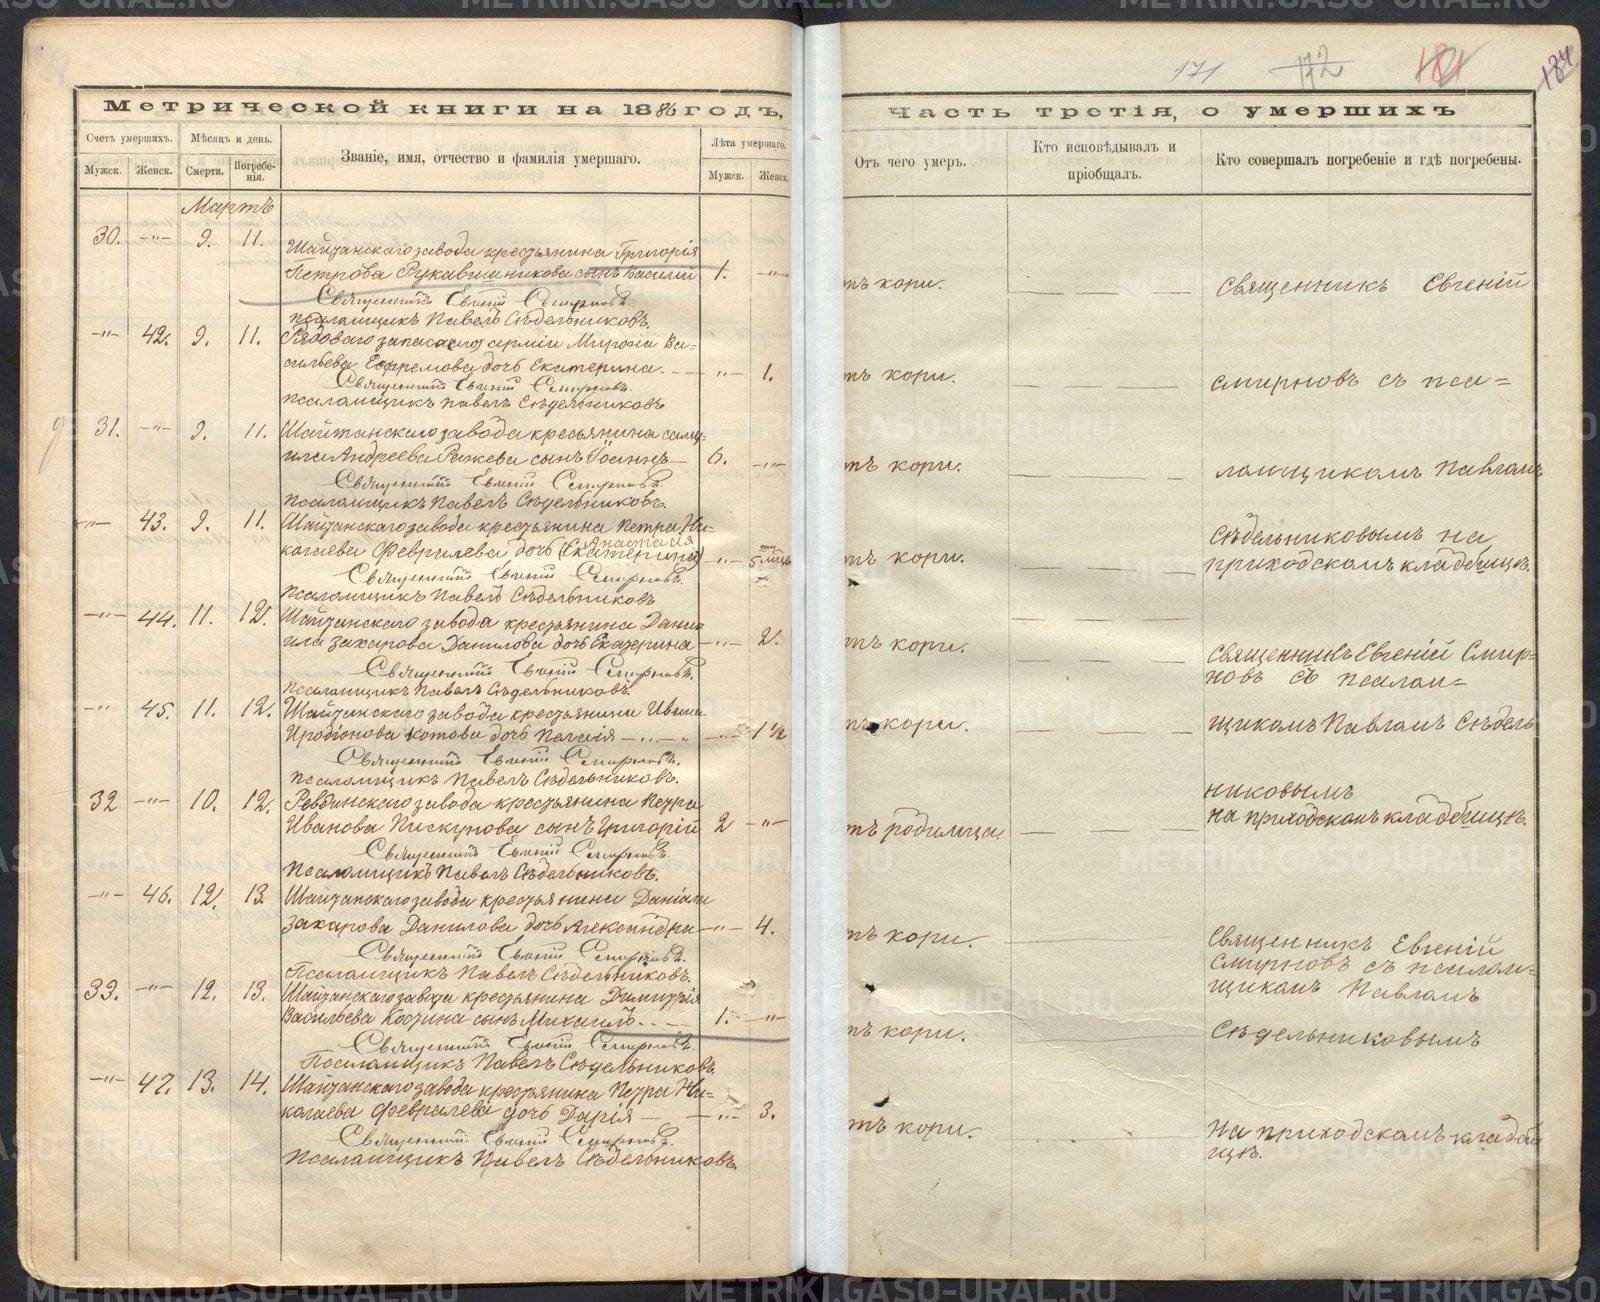 171 172 181 184
Метрической книги на 1886 годъ, часть третія, о умершихъ
Счетъ умершихъ. Мѣсяцъ и день. Званіе, имя, отчество и фамилія умершаго. Лѣта умершаго. Отъ чего умеръ. Кто исповѣдывалъ и пріобщалъ. Кто совершалъ погребеніе и гдѣ погребены.
Мужск. Женск. Смерти. Погребенія. Мужск. Женск.
Мартъ
30. -"- 9. 11. Шайтанскаго завода крестьянина Григорія
Петрова Рукавишникова сынъ Василій 1. -"- тъ кори. Священникъ Евгеній
Священникъ Евгеній Смирновъ
псаломщикъ Павелъ Сѣдельниковъ.
-"- 42. 9. 11. Рядоваго запаснаго арміи Мирона Ва-
сильева Ефремова дочь Екатерина. -"- 1. тъ кори. Смирновъ съ пса=
Священникъ Евгеній Смирновъ.
псаломщикъ Павелъ Сѣдельниковъ
31. -"- 9. 11. Шайтанскаго завода кресьянина Саму-
ила Андреева Ряжева сынъ Іоаннъ 6. -"- тъ кори. ломщикомъ Павломъ
Священникъ Евгеній Смирновъ.
Псаломщикъ Павелъ Сѣдельниковъ.
-"- 43. 9. 11. Шайтанскаго завода крестьянина Петра Ни-
Анастасія
колаева Февралева дочь (Екатерина) -"- 5 мѣся тъ кори. Сѣдельниковымъ на
приходскомъ кладбищѣ.
Священникъ Евгеній Смирновъ.
Псаломщикъ Павелъ Сѣдельниковъ
-"- 44. 11. 12. Шайтанскаго завода крестьянина Дани-
ила Захарова Данилова дочь Екатерина -"- 2. тъ кори. Священникъ Евгеній Смир=
новъ съ псалом=
Священникъ Евгеній Смирновъ.
Псаломщикъ Павелъ Сѣдельниковъ.
-"- 45. 11. 12. Шайтанскаго завода крестьянина Ивана
Иродіонова Котова дочь Пелагія -"- 1 1/2 тъ кори. щикомъ Павломъ Сѣдель
Священникъ Евгеній Смирновъ.
псаломщикъ Павелъ Сѣдельниковъ.
32 -"- 10. 12. Ревдинскаго завода крестьянина Петра
Иванова Пискунова сынъ Григорій 2 -"- тъ родимца никовымъ
на приходскомъ кладбищѣ.
Священникъ Евгеній Смирновъ.
Псаломщикъ Павелъ Сѣдельниковъ.
-"- 46. 12. 13. Шайтанскаго завода крестьянина Даніила
Захарова Данилова дочь Александра -"- 4. тъ кори. Священникъ Евгеній
Смирновъ съ псалом=
щикомъ Павломъ
Священникъ Евгеній Смирновъ.
Псаломщикъ Павелъ Сѣдельниковъ.
33. -"- 12. 13. Шайтанскаго завода крестьянина Димитрія
Васильева Костина сынъ Михаилъ 1. -"- тъ кори. Сѣдельниковымъ
Священникъ Евгеній Смирновъ.
Псаломщикъ Павелъ Сѣдельниковъ.
-"- 47. 13. 14. Шайтанскаго завода крестьянина Петра Ни-
колаева Февралева дочь Дарія -"- 3. тъ кори. На приходскомъ кладби
щѣ.
Священникъ Евгеній Смирновъ.
Псаломщикъ Павелъ Сѣдельниковъ.
METRIKI.GASO-URAL.RU